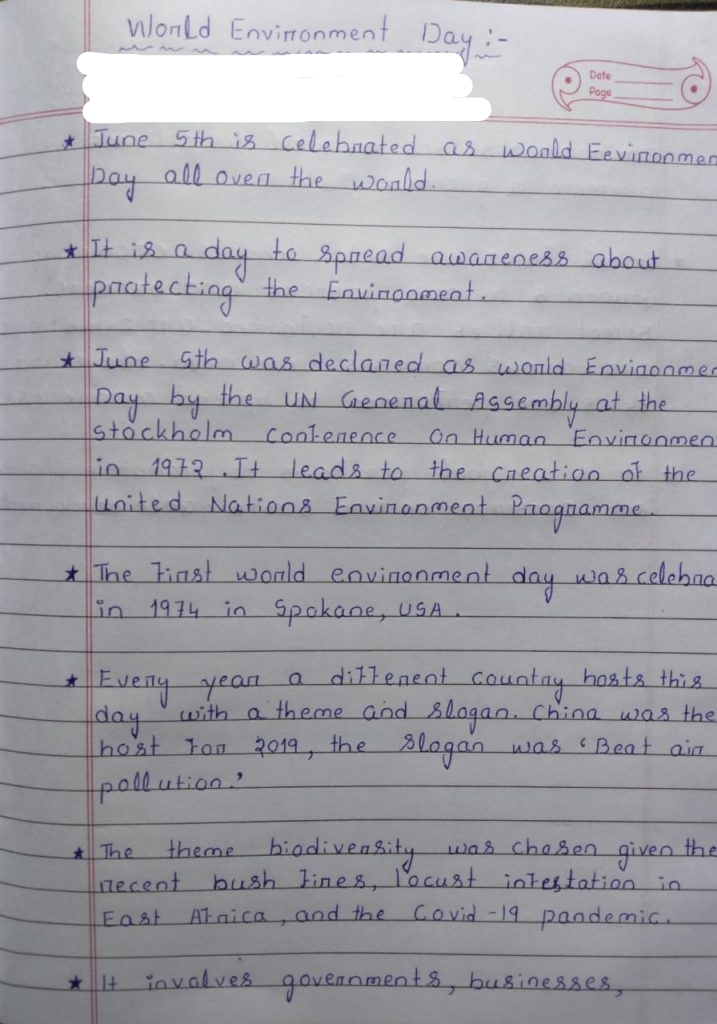 World Environment Day :-
Date
Page
★ June 5th is celebrated as world Eevironmen
Day all over the world.
★ It is a day to spread awareness about
protecting the Environment.
★ June 5th was declared as world Environme
Day by the UN General Assembly at the
stockholm conference on Human Environmen
in 1972. It leads to the creation of the
united Nations Environment Programme.
★ The first world environment day was celebra
in 1974 in Spokane, USA.
★ Every year a different country hosts this
day with a theme and slogan. China was the
host for 2019, the slogan was ‘Beat air
pollution.’
★ The theme biodiversity was chosen given the
recent bush fires, locust infestation in
East Africa, and the Covid-19 pandemic.
★ It involves governments, businesses,